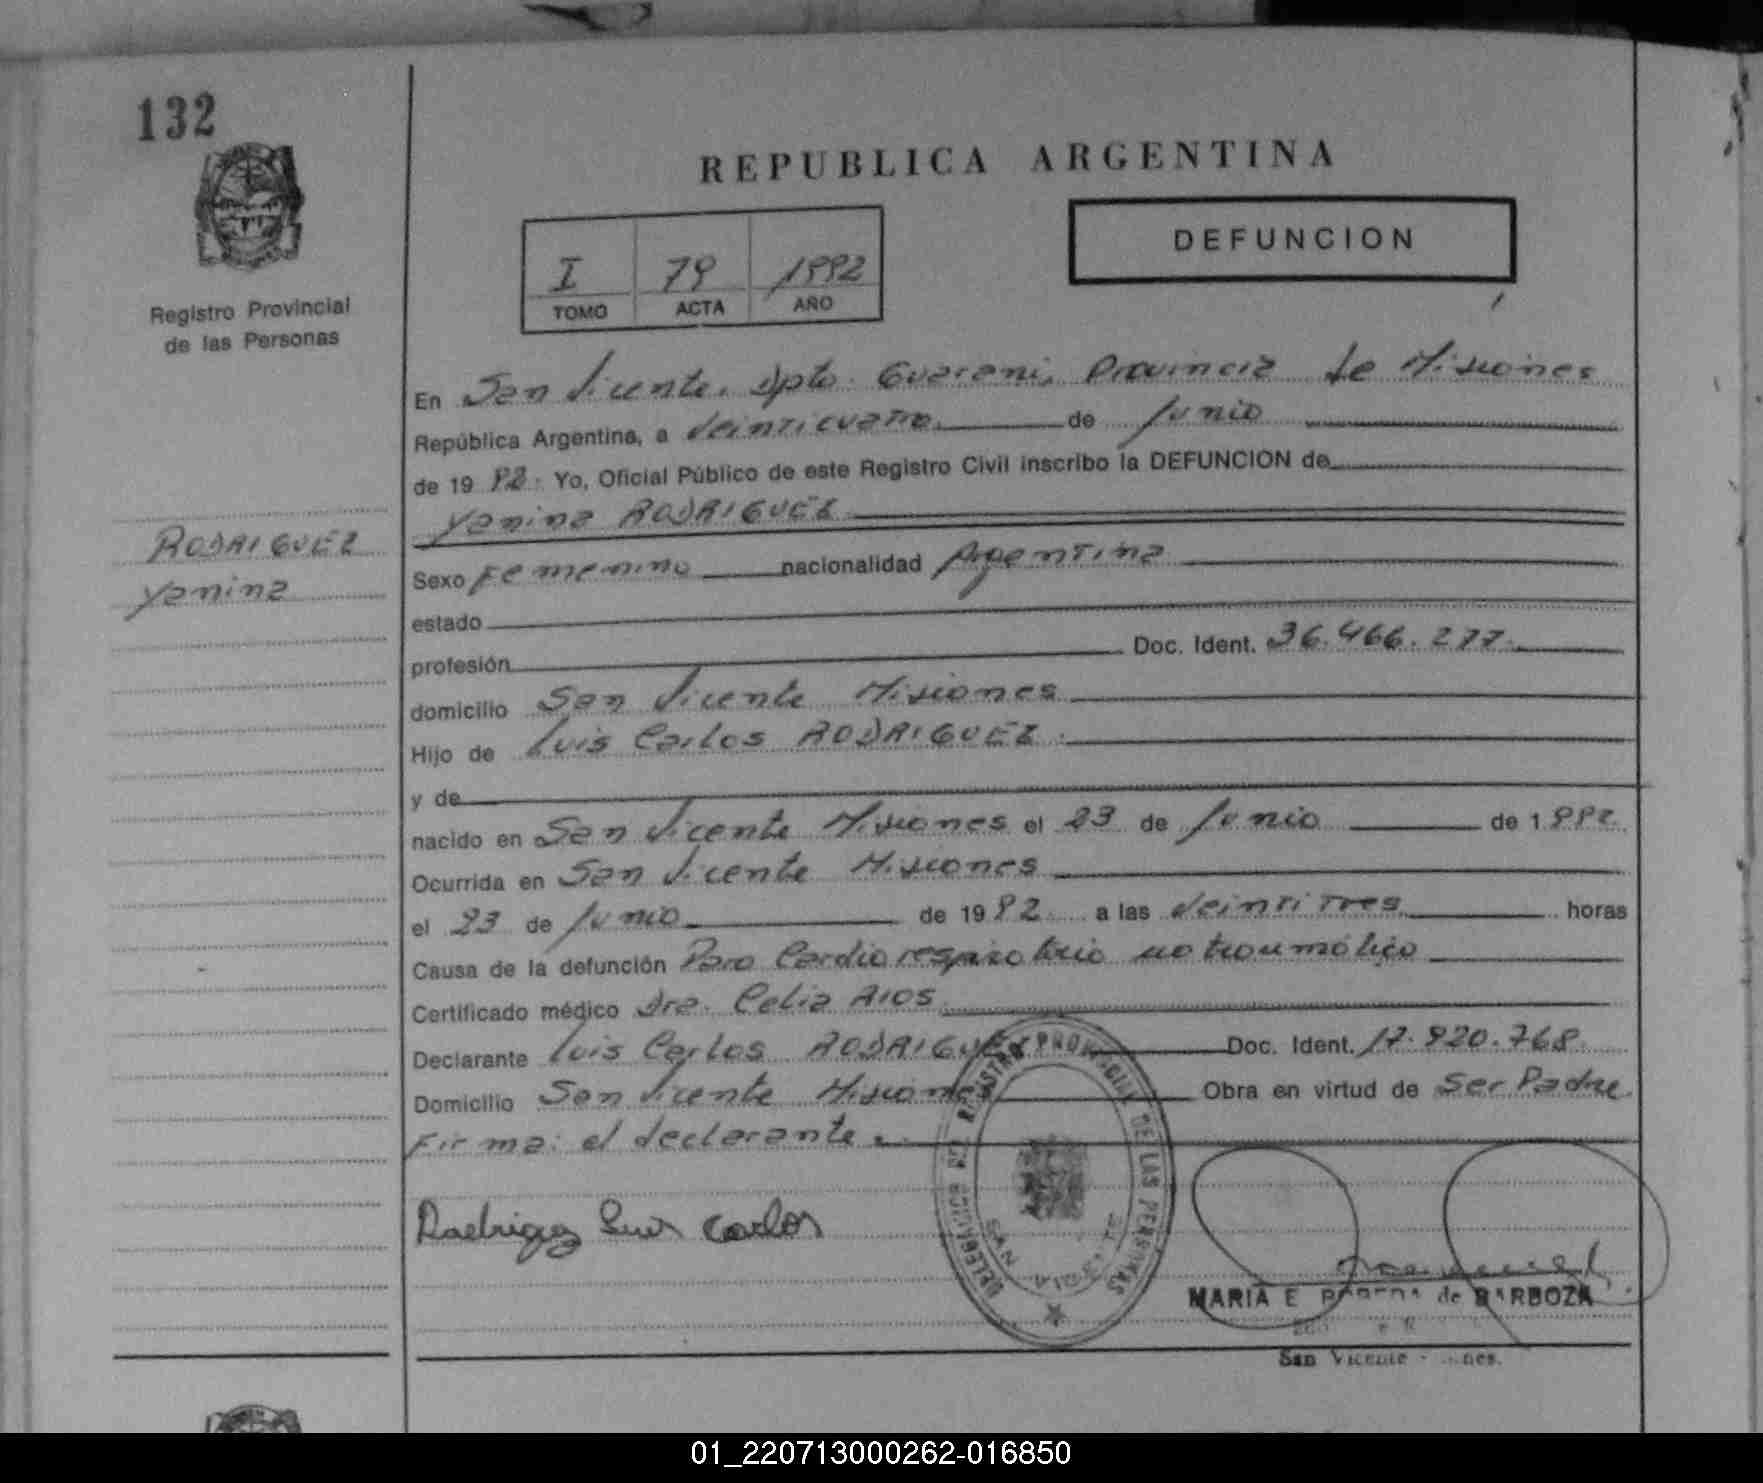 132
REPUBLICA ARGENTINA
DEFUNCION
I 79 1992
TOMO ACTA AÑO
Registro Provincial
de las Personas
En San Vicente, Dpto. Guarani, Provincia de Misiones
República Argentina, a Veinticuatro de Junio
de 1992. Yo, Oficial Público de este Registro Civil inscribo la DEFUNCION de
Yanina RODRIGUEZ
RODRIGUEZ
Yanina
Sexo Femenino nacionalidad Argentina
estado
profesión Doc. Ident. 36.466.277.
domicilio San Vicente Misiones
Hijo de Luis Carlos RODRIGUEZ.
y de
nacido en San Vicente Misiones el 23 de Junio de 1992.
Ocurrida en San Vicente Misiones
el 23 de Junio de 1992 a las Veintitres horas
Causa de la defunción Paro Cardiorespiratorio no traumático
Certificado médico Dra. Celia RIOS.
Declarante Luis Carlos RODRIGUEZ Doc. Ident. 17.920.768.
Domicilio San Vicente Misiones Obra en virtud de Ser Padre.
Firma: el declarante.
Rodriguez Luis Carlos
DELEGACION DEL REGISTRO PROVINCIAL DE LAS PERSONAS
SAN VICENTE
MARIA E de BARBOZA
San Vicente
01_220713000262-016850